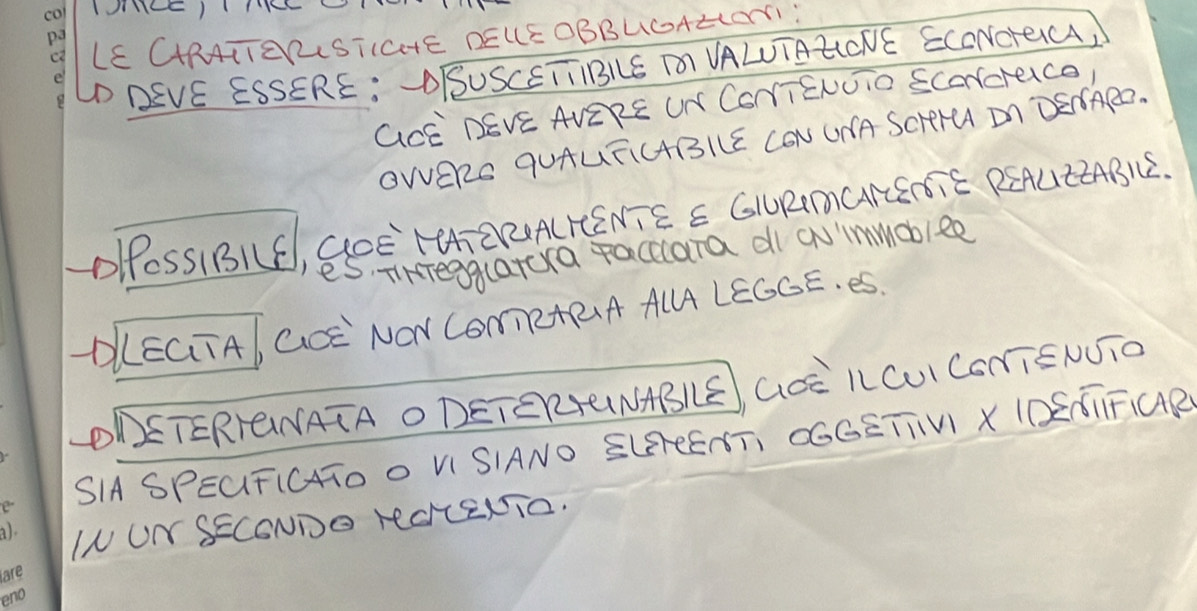 LE CARATTERISTICHE DELLE OBBLIGAZIONI:
DEVE ESSERE: SUSCETTIBILE DI VALUTAZIONE ECONOMICA,
CIOÈ DEVE AVERE UN CONTENUTO ECONOMICO,
OVVERO QUALIFICABILE CON UNA SOMMA DI DENARO.
POSSIBILE, CIOÈ MATERIALMENTE E GIURIDICAMENTE REALIZZABILE.
es. tinteggiatura facciata di un immobile
LECITA, CIOÈ NON CONTRARIA ALLA LEGGE. es.
DETERMINATA O DETERMINABILE, CIOÈ IL CUI CONTENUTO
SIA SPECIFICATO O VI SIANO ELEMENTI OGGETTIVI X IDENTIFICAR
IN UN SECONDO MOMENTO.
co
pa
ca
e
e-
a).
iare
eno